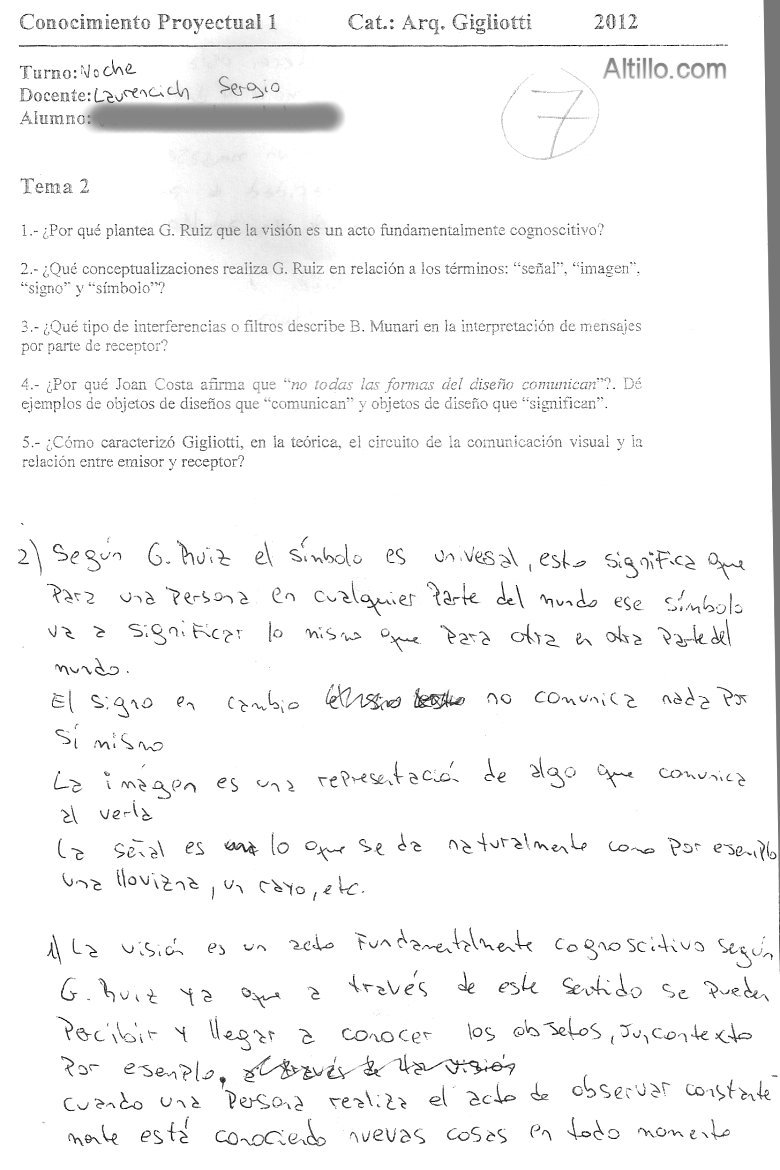 Conocimiento Proyectual 1 Cat.: Arq. Gigliotti 2012
Altillo.com
Turno: Noche
Docente: Laurencich Sergio
Alumno:
7
Tema 2
1.- ¿Por qué plantea G. Ruiz que la visión es un acto fundamentalmente cognoscitivo?
2.- ¿Qué conceptualizaciones realiza G. Ruiz en relación a los términos: “señal”, “imagen”,
“signo” y “símbolo”?
3.- ¿Qué tipo de interferencias o filtros describe B. Munari en la interpretación de mensajes
por parte de receptor?
4.- ¿Por qué Joan Costa afirma que “no todas las formas del diseño comunican”?. Dé
ejemplos de objetos de diseños que “comunican” y objetos de diseño que “significan”.
5.- ¿Cómo caracterizó Gigliotti, en la teórica, el circuito de la comunicación visual y la
relación entre emisor y receptor?
2) Según G. Ruiz el símbolo es univesal, esto significa que
para una persona en cualquier parte del mundo ese símbolo
va a significar lo mismo que para otra en otra parte del
mundo.
El signo en cambio no comunica nada por
sí mismo
La imágen es una representación de algo que comunica
al verla
La señal es lo que se da naturalmente como por ejemplo
una llovizna, un rayo, etc.
1) La visión es un acto fundamentalmente cognoscitivo según
G. Ruiz ya que a través de este sentido se pueden
percibir y llegar a conocer los objetos, su contexto
Por ejemplo, a través de la visión
cuando una persona realiza el acto de observar constante
mente está conociendo nuevas cosas en todo momento